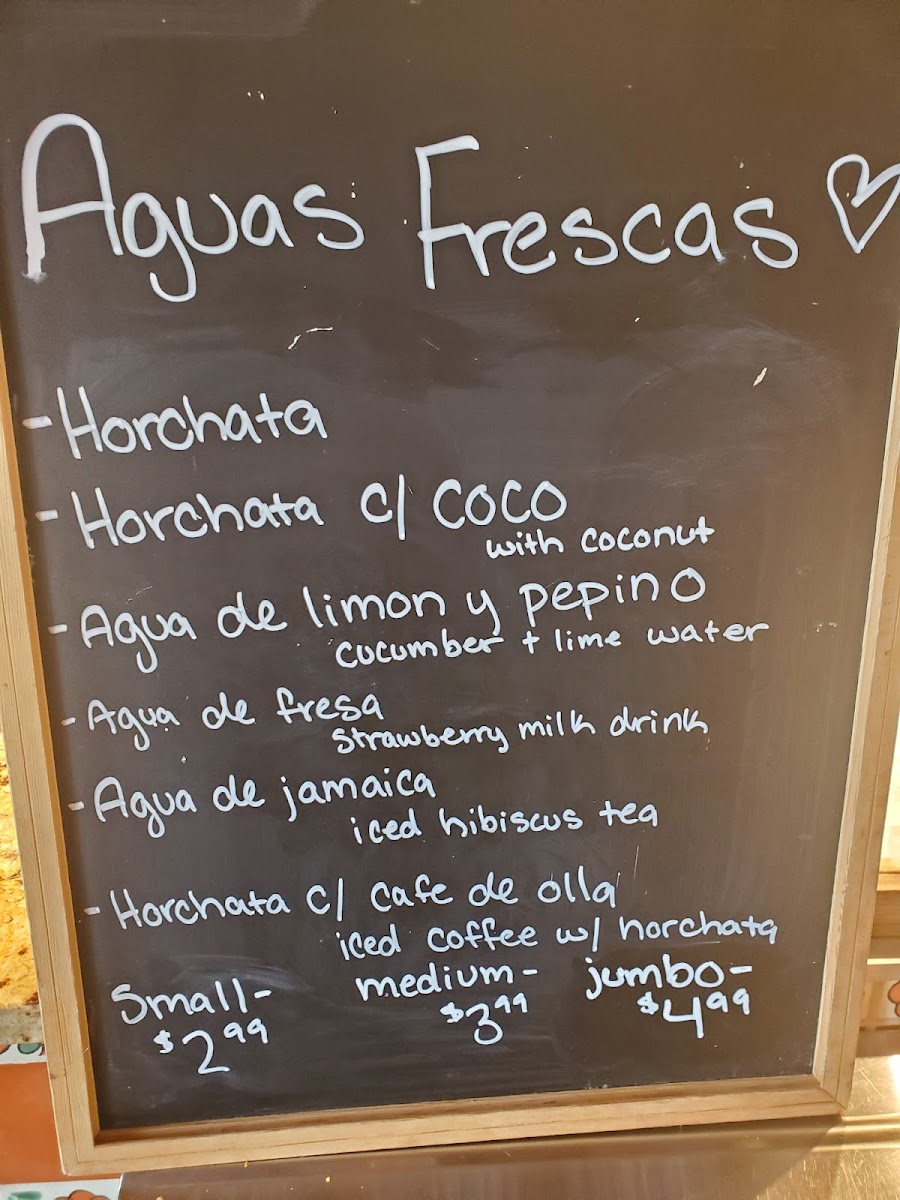 Aguas Frescas
- Horchata
- Horchata c/ coco
with coconut
- Agua de limon y pepino
cucumber + lime water
- Agua de fresa
strawberry milk drink
- Agua de jamaica
iced hibiscus tea
- Horchata c/ cafe de olla
iced coffee w/ horchata
small- medium- jumbo-
$2.99 $3.99 $4.99